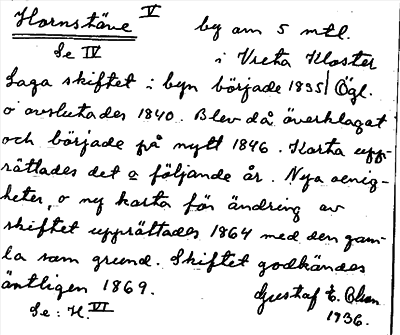 Hornstäve V by om 5 mtl.
Se IV i Vreta Kloster
Laga skiftet i byn började 1835 Ögl.
o avslutades 1840. Blev då överklagat
och började på nytt 1846. Karta upp-
rättades det o följande år. Nya oenig-
heter, o ny karta för ändring av
skiftet upprättades 1864 med den gam-
la som grund. Skiftet godkändes
äntligen 1869. Gustaf E. Olsson
Se: H. VI 1936.